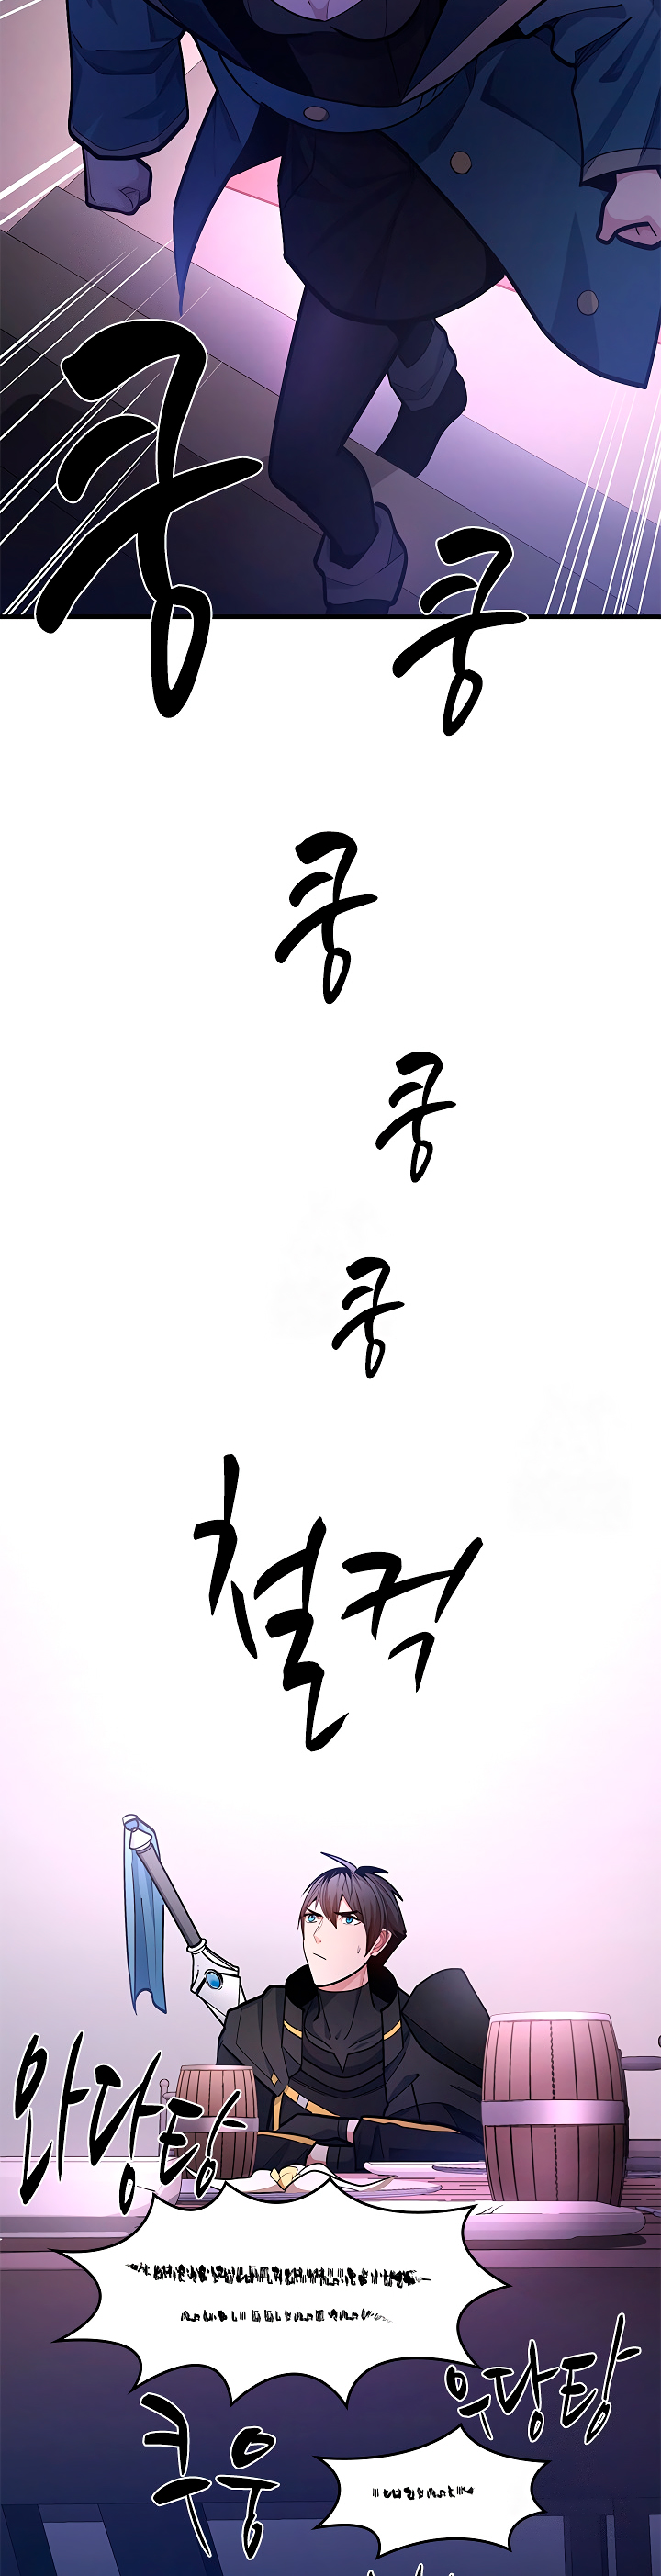 쿵
쿵
쿵
쿵
쿵
철컥
와당탕
우당탕
쿠웅